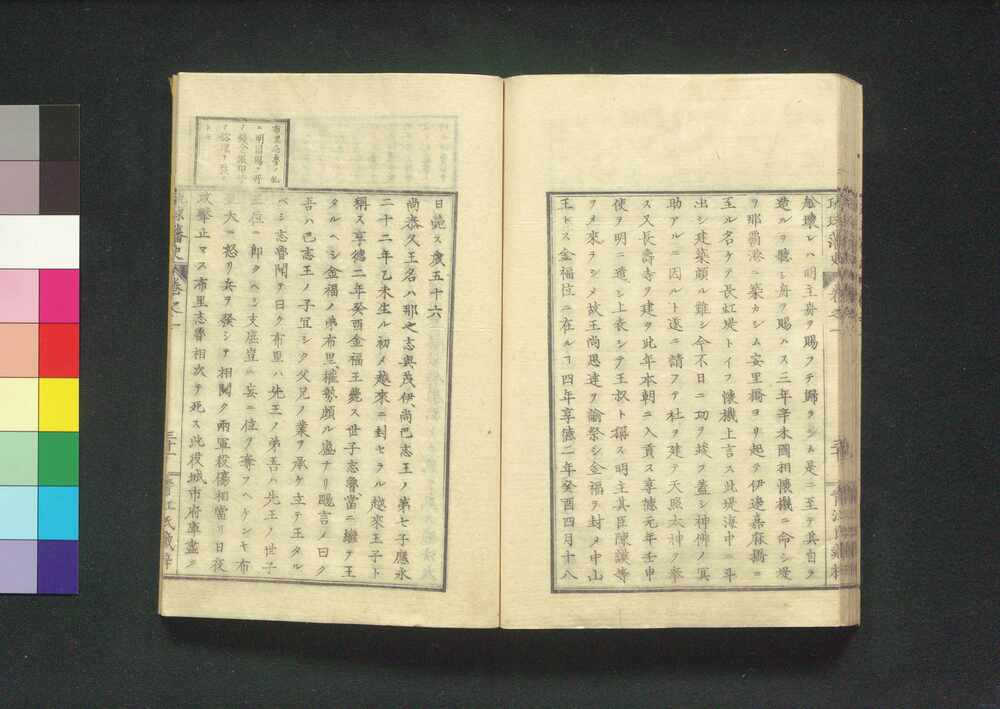 舩壊レハ明主舟ヲ賜フテ歸ラシム是ニ至テ其自ヲ
造ルヲ聽シ舟ヲ賜ハス三年辛未國相懷機ニ命シ堤
ヲ那覇港ニ築カシム安里橋ヨリ起テ伊邊嘉麻橋ニ
至ル名ケテ長虹堤トイフ懷機上言ス此堤海中ニ斗
出シ建築頗ル難シ今不日ニ功ヲ竣フ蓋シ神佛ノ冥
助アルニ因ルト遂ニ請フテ社ヲ建テ天照太神ヲ奉
ス又長壽寺ヲ建ツ此年本朝ニ入貢ス享德元年壬申
使ヲ明ニ遣シ上表シテ王叔ト稱ス明主其臣陳謨等
ヲメ來ラシメ故王尚思達ヲ諭祭シ金福ヲ封メ中山
王トス金福位ニ在ルヿ四年享德二年癸酉四月十八
日薨ス歲五十六
尚泰久王名ハ那之志與茂伊、尚巴志王ノ第七子應永
二十二年乙未生ル初メ越來ニ封セラル越來王子ト
稱ス享德二年癸酉金福王薨ス世子志魯、當ニ繼テ王
タルヘシ金福ノ弟布里、權勢頗ル盛ナリ颺言ノ曰ク
吾ハ巴志王ノ子冝シク父兄ノ業ヲ承ケ立テ王タル
ヘシ志魯聞テ曰ク布里ハ先王ノ弟吾ハ先王ノ世子
立位ニ卽クヘシ支庶豈ニ妄ニ位ヲ奪フヘケンヤ布
里大ニ怒リ兵ヲ發シテ相鬪ク兩軍殺傷相當リ日夜
攻擊止マス布里志魯相次テ死ス此役城市府庫盡ク
琉球藩史 卷之一
三十一
青江氏藏梓